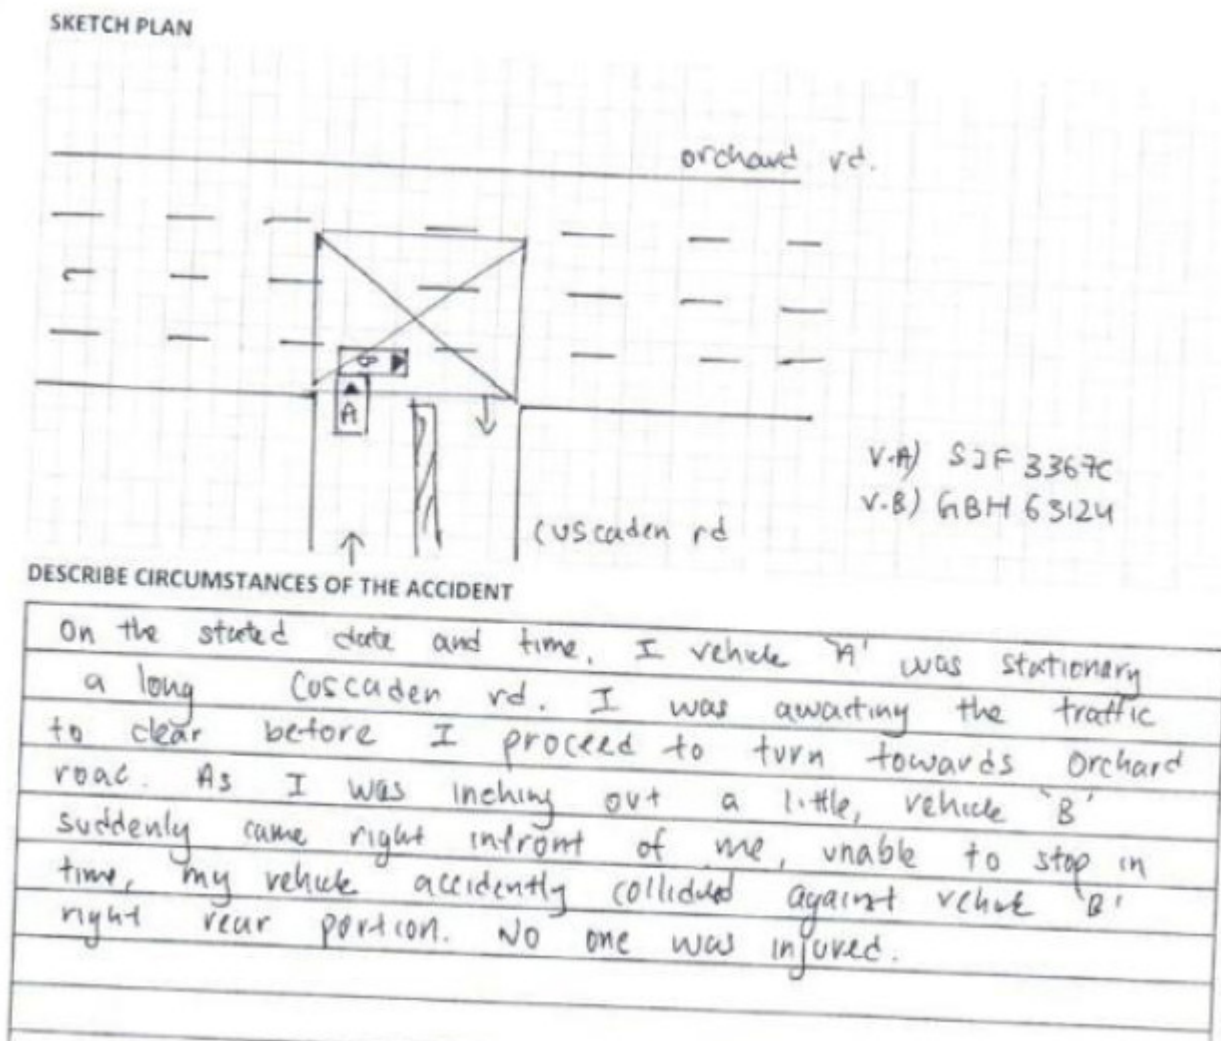 SKETCH PLAN
orchard rd.
B
A
V.A) SJF 3367C
V.B) GBH 6312U
Cuscaden rd
DESCRIBE CIRCUMSTANCES OF THE ACCIDENT
On the stated date and time, I vehicle 'A' was stationary
a long Cuscaden rd. I was awaiting the traffic
to clear before I proceed to turn towards Orchard
road. As I was inching out a little, vehicle 'B'
suddenly came right infront of me, unable to stop in
time, my vehicle accidently collided against vehicle 'B'
right rear portion. No one was injured.